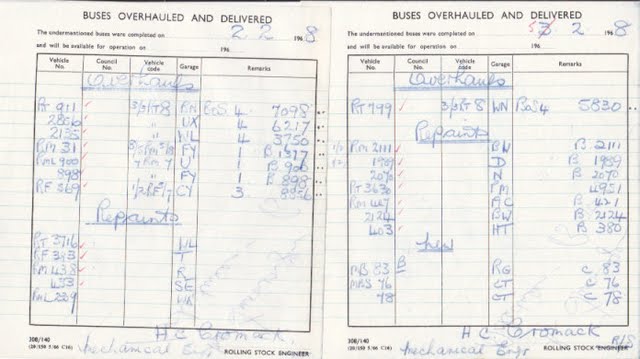 BUSES OVERHAULED AND DELIVERED
The undermentioned buses were completed on 2 2 1968
and will be available for operation on 196
Vehicle No. Council No. Vehicle code Garage Remarks
Overhauls
RT 911 3/3RT8 RN BoS 4 7098
2866 " UX 4 6217
2135 " WL 4 3750
RM 31 FY 1 B 1317
RML 900 U 1 B 900
898 " FY 1 B 898
RF 369 CY 3 8856
Repaints
RT 3716 WL
RF 393 T
RM 438 R
433 SE
RML 239
H C Cromack
Mechanical Engr
308/140
ROLLING STOCK ENGINEER
BUSES OVERHAULED AND DELIVERED
The undermentioned buses were completed on 5 2 1968
and will be available for operation on 196
Vehicle No. Council No. Vehicle code Garage Remarks
Overhauls
RT 799 3/3RT8 WN BoS 4 5830
Repaints
RM 2111 BW B 2111
1989 D B 1989
2070 N B 2070
RT 3630 PM 4951
RM 427 AC B 421
2124 BW B 2124
403 HT B 380
New
MB 83 B RG C 83
MBS 76 CT C 76
78 CT C 78
H C Cromack
Mechanical Engr
308/140
ROLLING STOCK ENGINEER